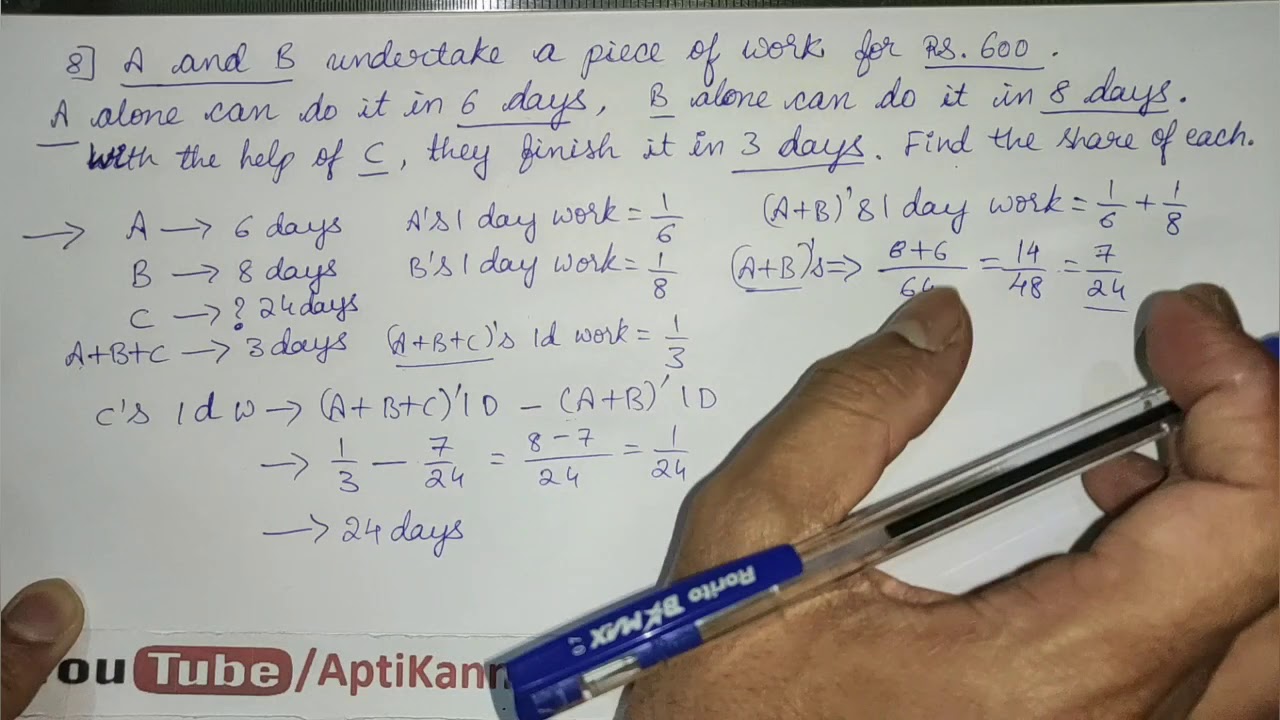 8] A and B undertake a piece of work for Rs. 600.
A alone can do it in 6 days, B alone can do it in 8 days.
With the help of C, they finish it in 3 days. Find the share of each.
→ A → 6 days A's 1 day work = 1/6 (A+B)'s 1 day work = 1/6 + 1/8
B → 8 days B's 1 day work = 1/8 (A+B)'s => 8+6/ = 14/48 = 7/24
C → ? 24 days
A+B+C → 3 days (A+B+C)'s 1d work = 1/3
C's 1d w → (A+B+C)'1D - (A+B)'1D
→ 1/3 - 7/24 = 8-7/24 = 1/24
→ 24 days
Rorito BKMAX
ou Tube/AptiKann